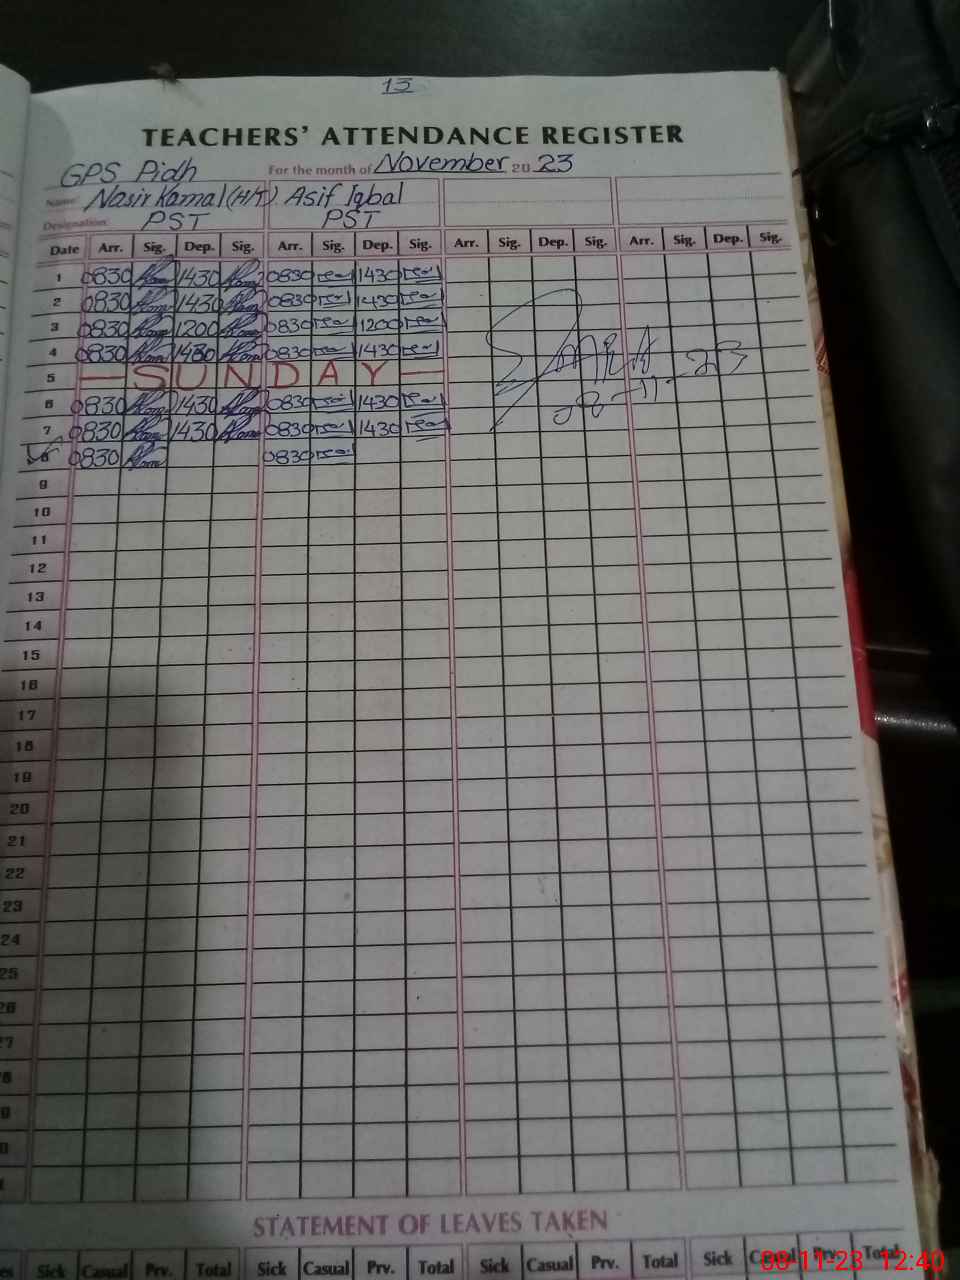 13
TEACHERS' ATTENDANCE REGISTER
GPS Pidh For the month of November 2023
Name: Nasir Kamal (H/T) Asif Iqbal
Designation: PST PST
Date Arr. Sig. Dep. Sig. Arr. Sig. Dep. Sig. Arr. Sig. Dep. Sig. Arr. Sig. Dep. Sig.
1 0830 1430 0830 1430
2 0830 1430 0830 1430
3 0830 1200 0830 1200
4 0830 1430 0830 1430
5 — SUNDAY —
6 0830 1430 0830 1430
7 0830 1430 0830 1430
8 0830 0830
08-11-23
9
10
11
12
13
14
15
16
17
18
19
20
21
22
23
24
25
26
27
STATEMENT OF LEAVES TAKEN
Sick Casual Prv. Total Sick Casual Prv. Total Sick Casual Prv. Total Sick Casual Prv. Total
08-11-23 12:40